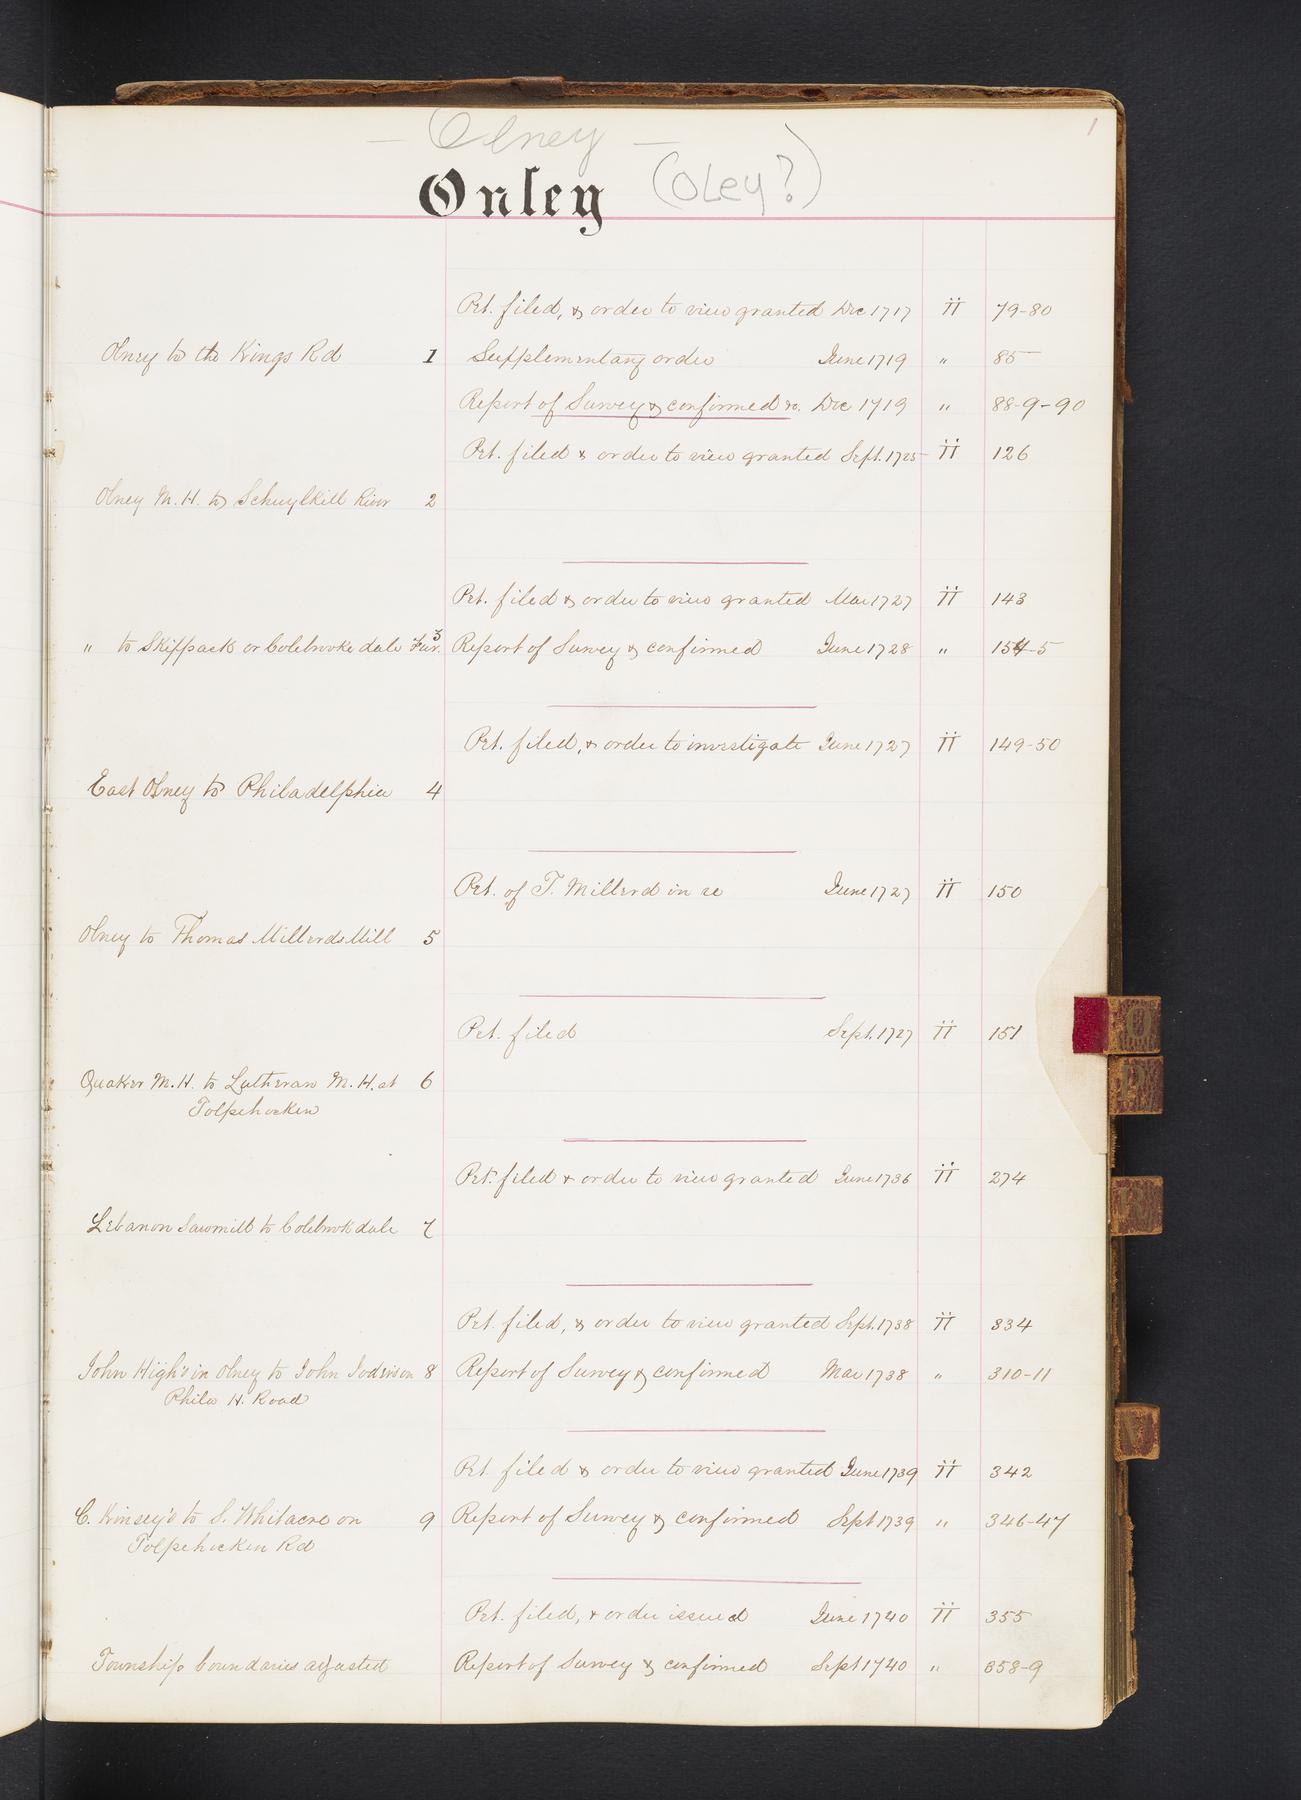 — Olney —
1
Onley (OLey?)
Pet. filed, & order to view granted Dec 1717 II 79-80
Olney to the Kings Rd 1 Supplementary order June 1719 " 85
Report of Survey & confirmed &c. Dec 1719 " 88-9-90
Pet. filed & order to view granted Sept. 1725 II 126
Olney M. H. to Schuylkill River 2
Pet. filed & order to view granted Mar 1727 II 143
" to Skippack or Colebrooke dale Fur. 3 Report of Survey & confirmed June 1728 " 154-5
Pet. filed, & order to investigate June 1727 II 149-50
East Olney to Philadelphia 4
Pet. of T. Millerd in re June 1727 II 150
Olney to Thomas Millerds Mill 5
Pet. filed Sept. 1727 II 151
Quaker M. H. to Lutheran M. H. at 6
Tolpehocken
Pet. filed & order to view granted June 1736 II 274
Lebanon Sawmill to Colebrookdale 7
Pet. filed, & order to view granted Sept. 1738 II 334
John High's in Olney to John 8 Report of Survey & confirmed Mar 1738 " 310-11
Phila H. Road
Pet. filed & order to view granted June 1739 II 342
C. Kinsey's to S. Whitacre on 9 Report of Survey & confirmed Sept 1739 " 346-47
Tolpehocken Rd
Pet. filed, & order issued June 1740 II 355
Township boundaries adjusted Report of Survey & confirmed Sept 1740 " 358-9
O
P
R
W